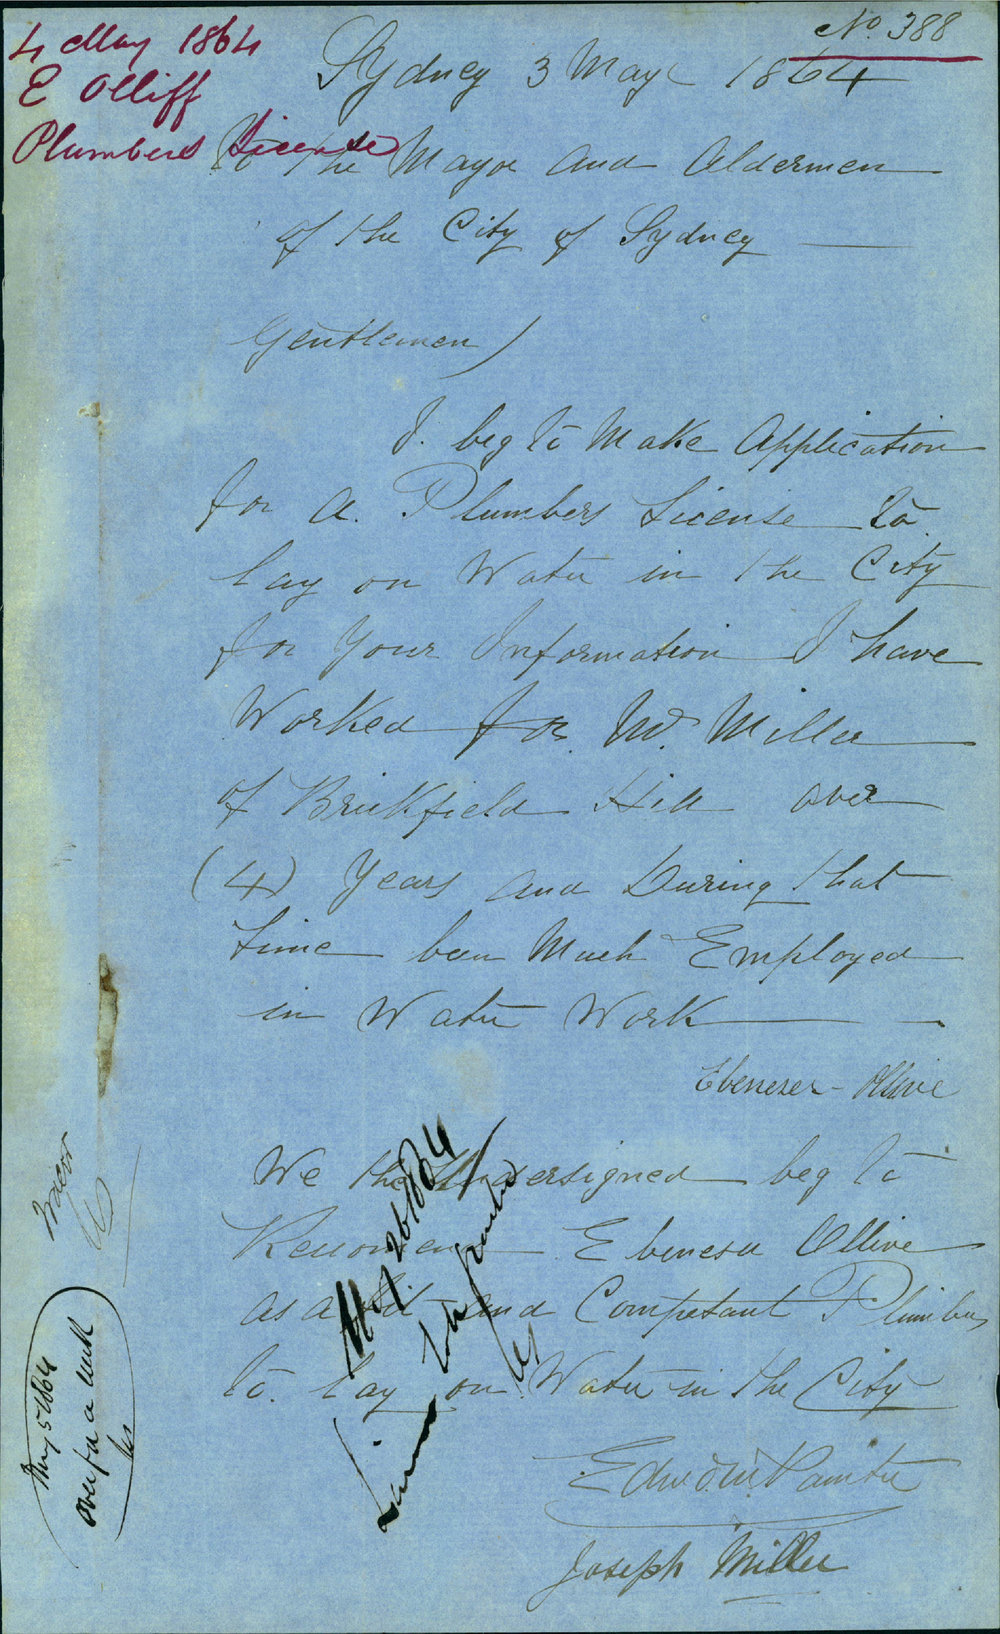 No. 388
4 May 1864
E Olliff
Plumbers License
Sydney 3 May 1864
To the Mayor and Aldermen
of the City of Sydney
Gentlemen
I. beg to Make Application
for A. Plumbers License to
lay on Water in the City
for Your Information I have
Worked for Mr. Miller
of Brickfield Hill over
(4) Years and During that
time been Much Employed
in Water Work
Ebenezer - Ollive
We the Undersigned beg to
Recomen Ebeneser Ollive
as a Fit and Competant Plumber
to. lay on Water in the City
Edwd Wm Painter
Joseph Miller
May 26/1864
License to be granted
May 5 1864
over for a week